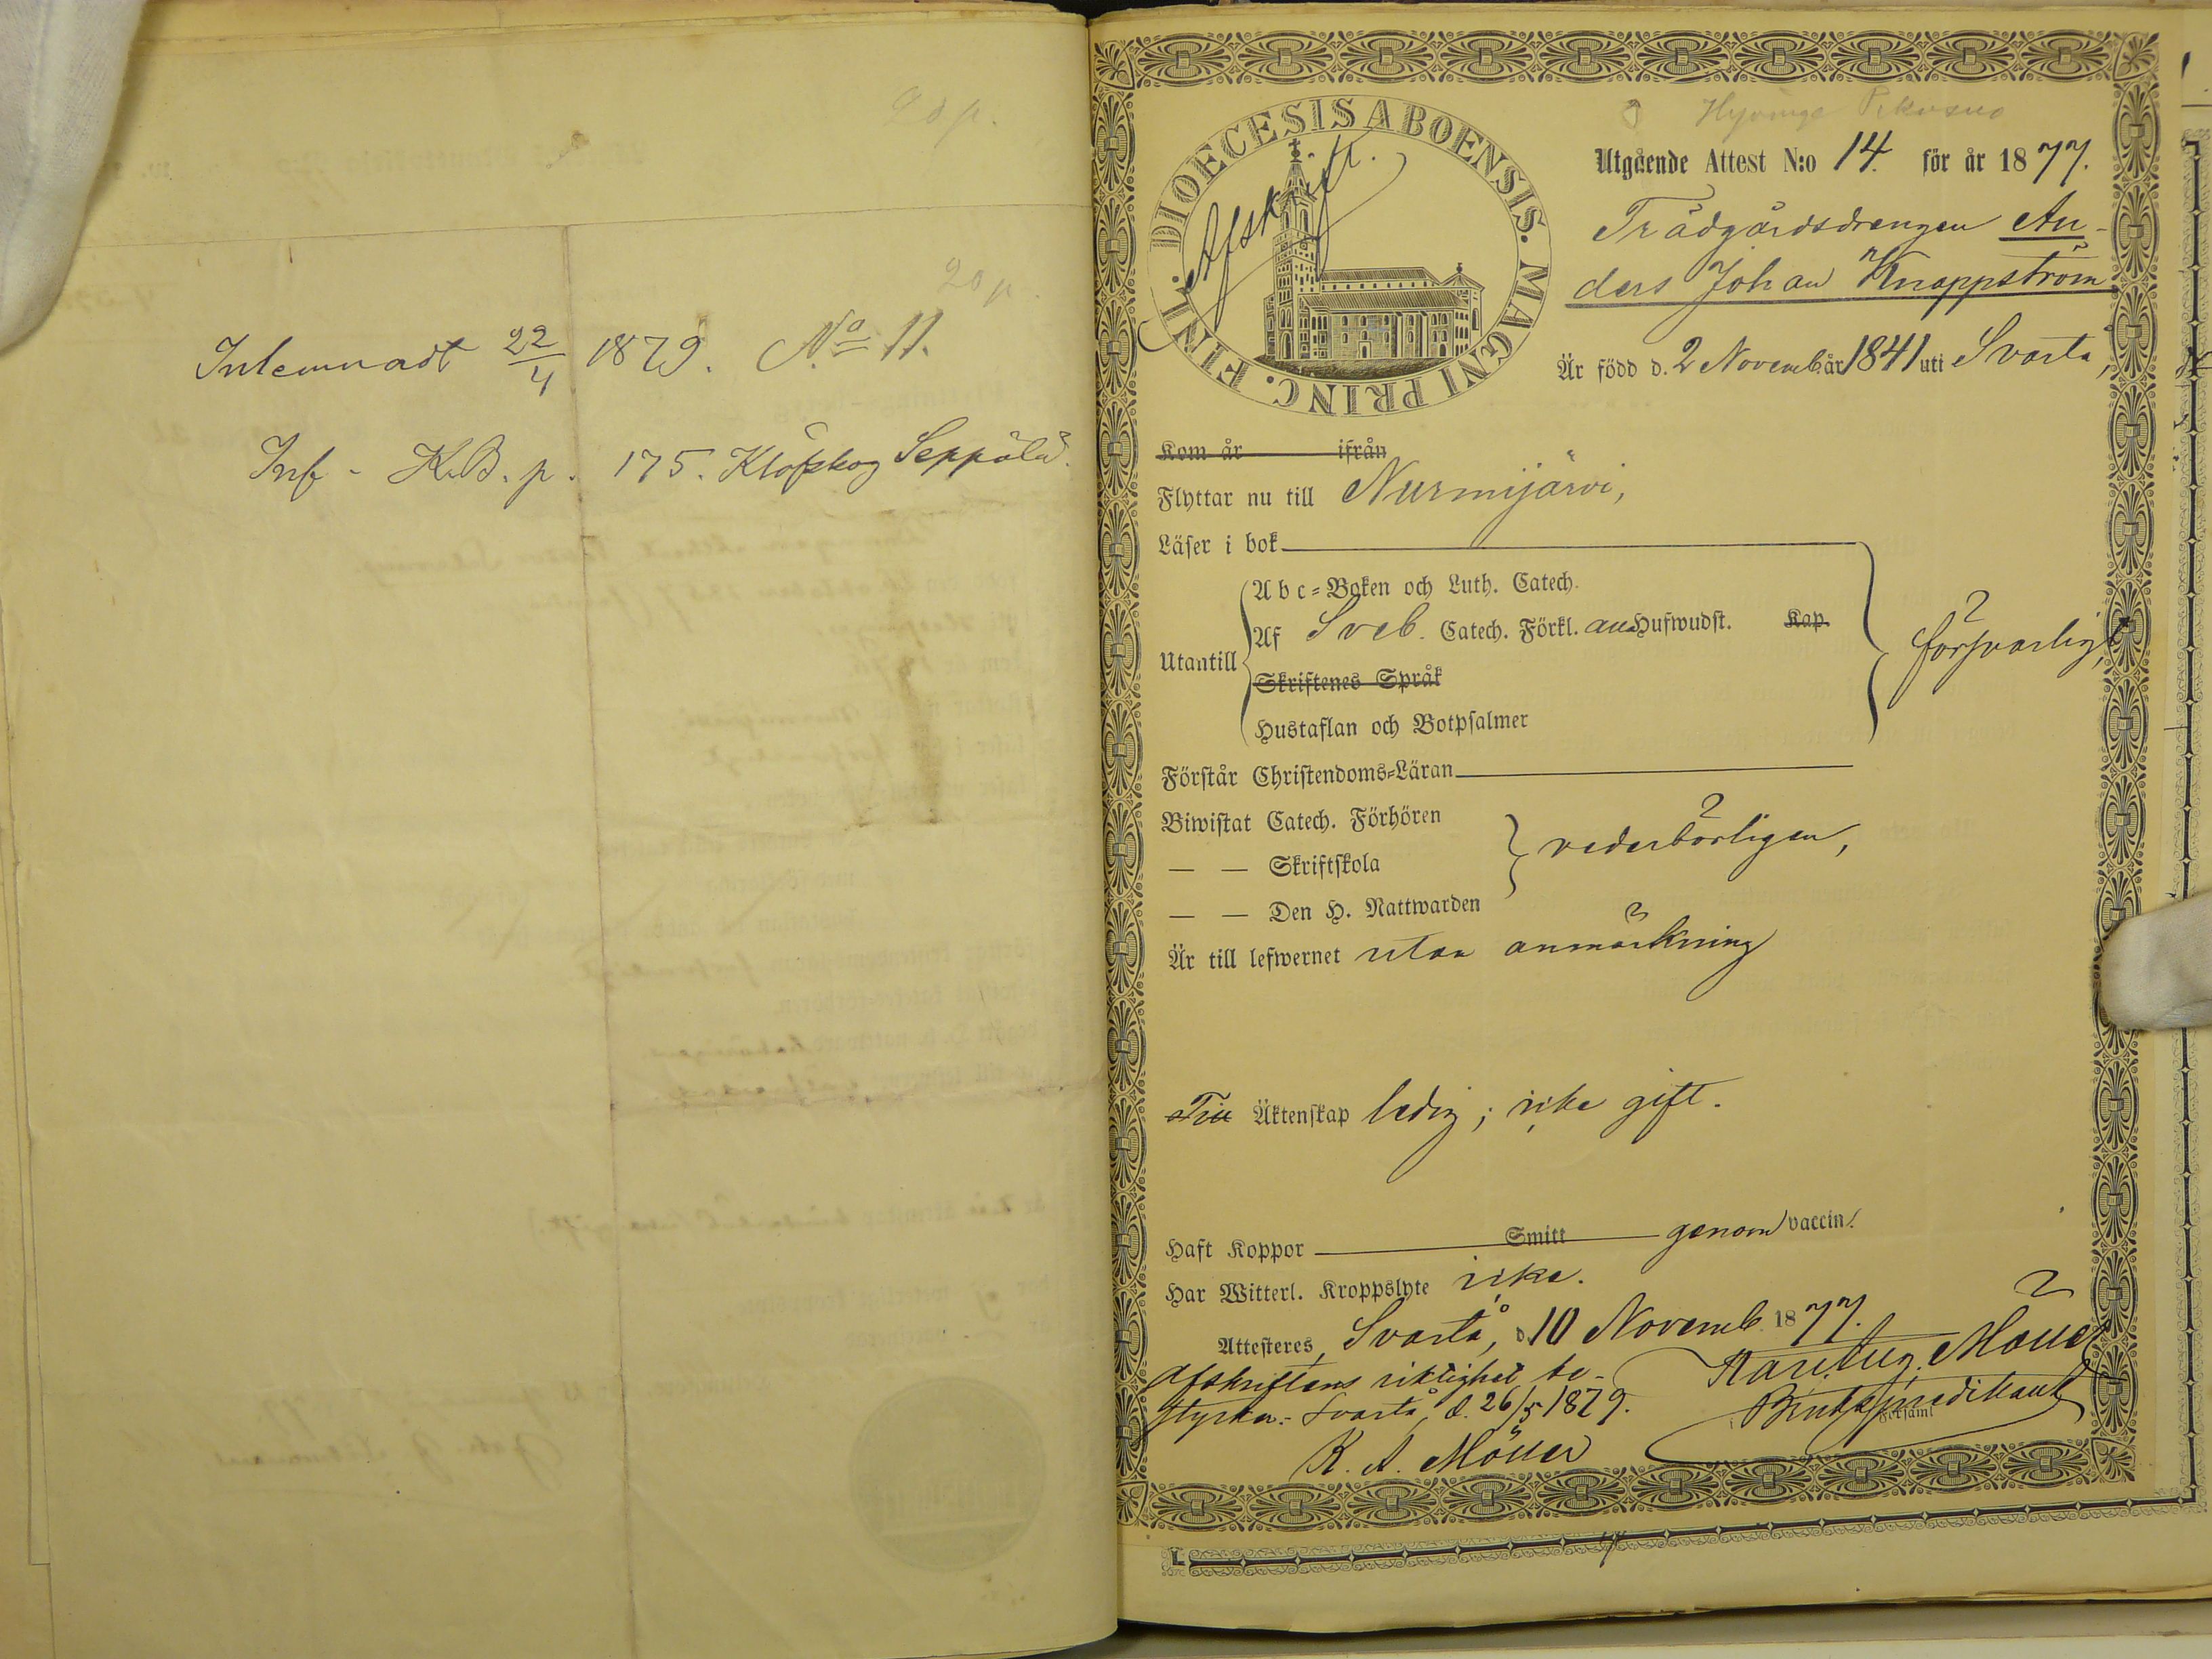 20 p.
20 p.
Inlemnadt 22/4 1879. No 11.
Inf - K.B. p. 175. Klöfskog Seppälä.
DIOECESIS ABOENSIS. MAGNI PRINC. FINL.
Afskrift.
Hyvinge
Utgående Attest N:o 14. för år 1877.
Trädgårdsdrengen An-
ders Johan Knappström
Är född d. 2 Novemb. år 1841 uti Svarta,
Kom år ifrån
Flyttar nu till Nurmijärvi,
Läser i bok
Abc-Boken och Luth. Catech.
Af Sveb. Catech. Förkl. Hufwudst. Kap.
Utantill
försvarligt,
Skriftenes Språk
Hustaflan och Botpsalmer
Förstår Christendoms-Läran
Biwistat Catech. Förhören
— — Skriftskola
vederbörligen,
— — Den H. Nattwarden
Är till lefwernet utan anmärkning
Till Äktenskap ledig; icke gift.
Haft Koppor Smitt genom vaccin.
Har Witterl. Kroppslyte icke.
Attesteres, Svartå, d. 10 Novemb. 1877.
Karl Aug. Möller
Bruks predikant
Församl
Afskriftens riktighet be-
styrker:- Svartå, d. 26/5 1879.
K. A. Möller